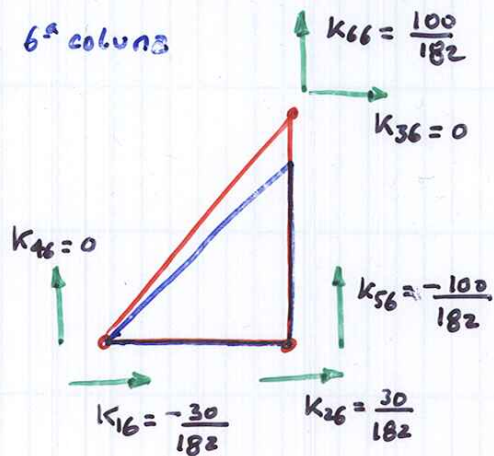 6ª coluna
K66 = 100/182
K36 = 0
K46 = 0
K56 = -100/182
K16 = -30/182
K26 = 30/182